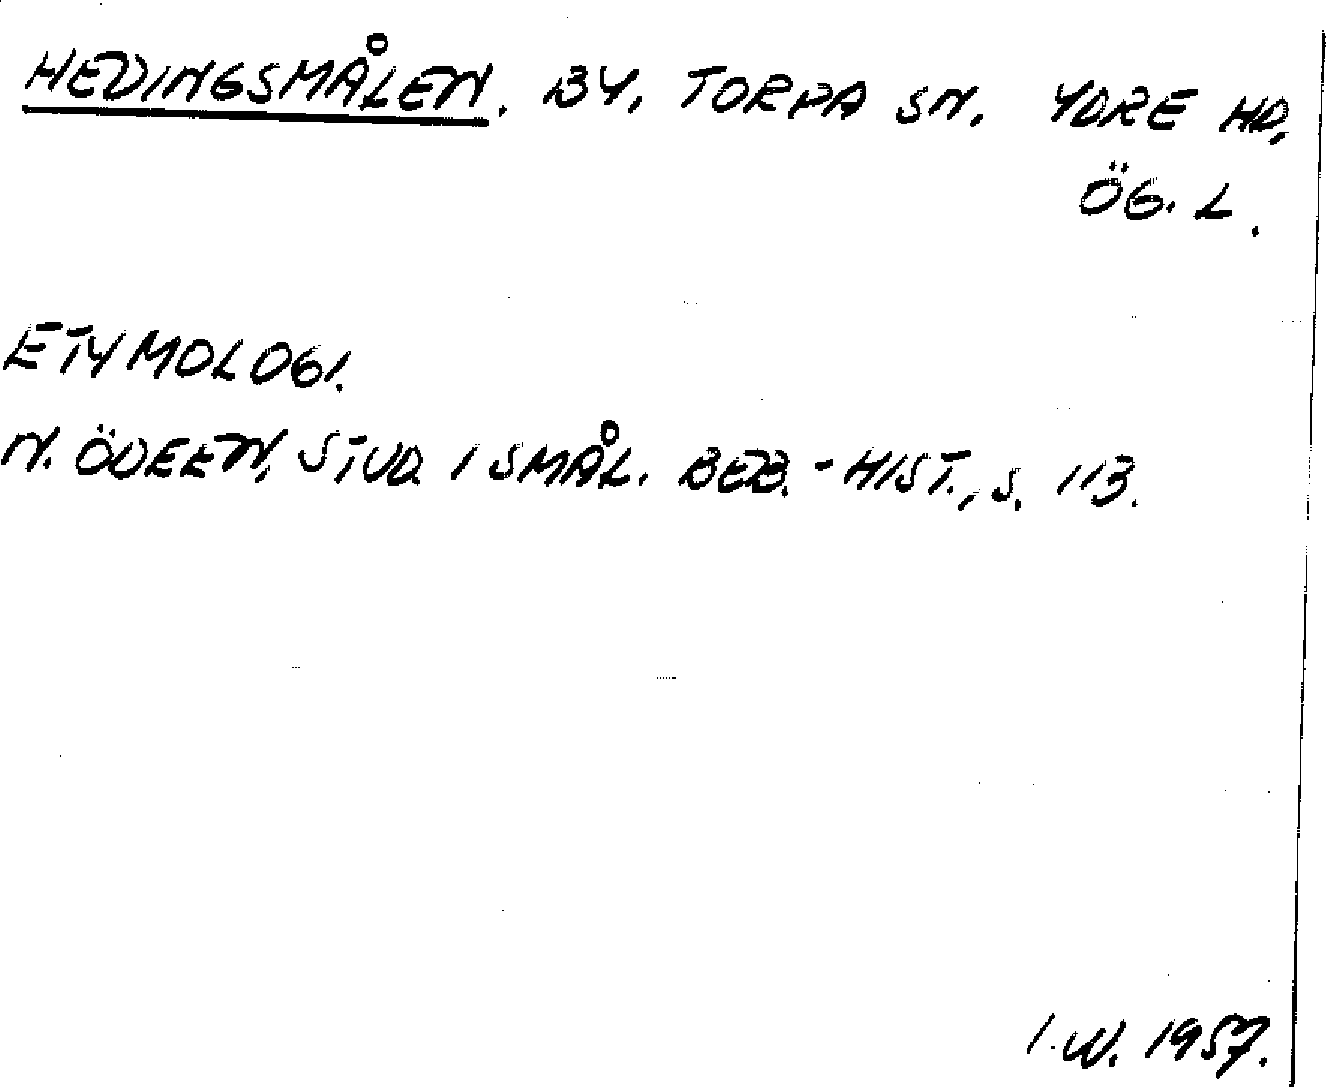 HEDINGSMÅLEN. BY, TORPA SN. YDRE HD,
ÖG. L.
ETYMOLOGI.
N. ÖDEEN, STUD. I SMÅL. BEB.-HIST., S. 113.
I.W. 1957.